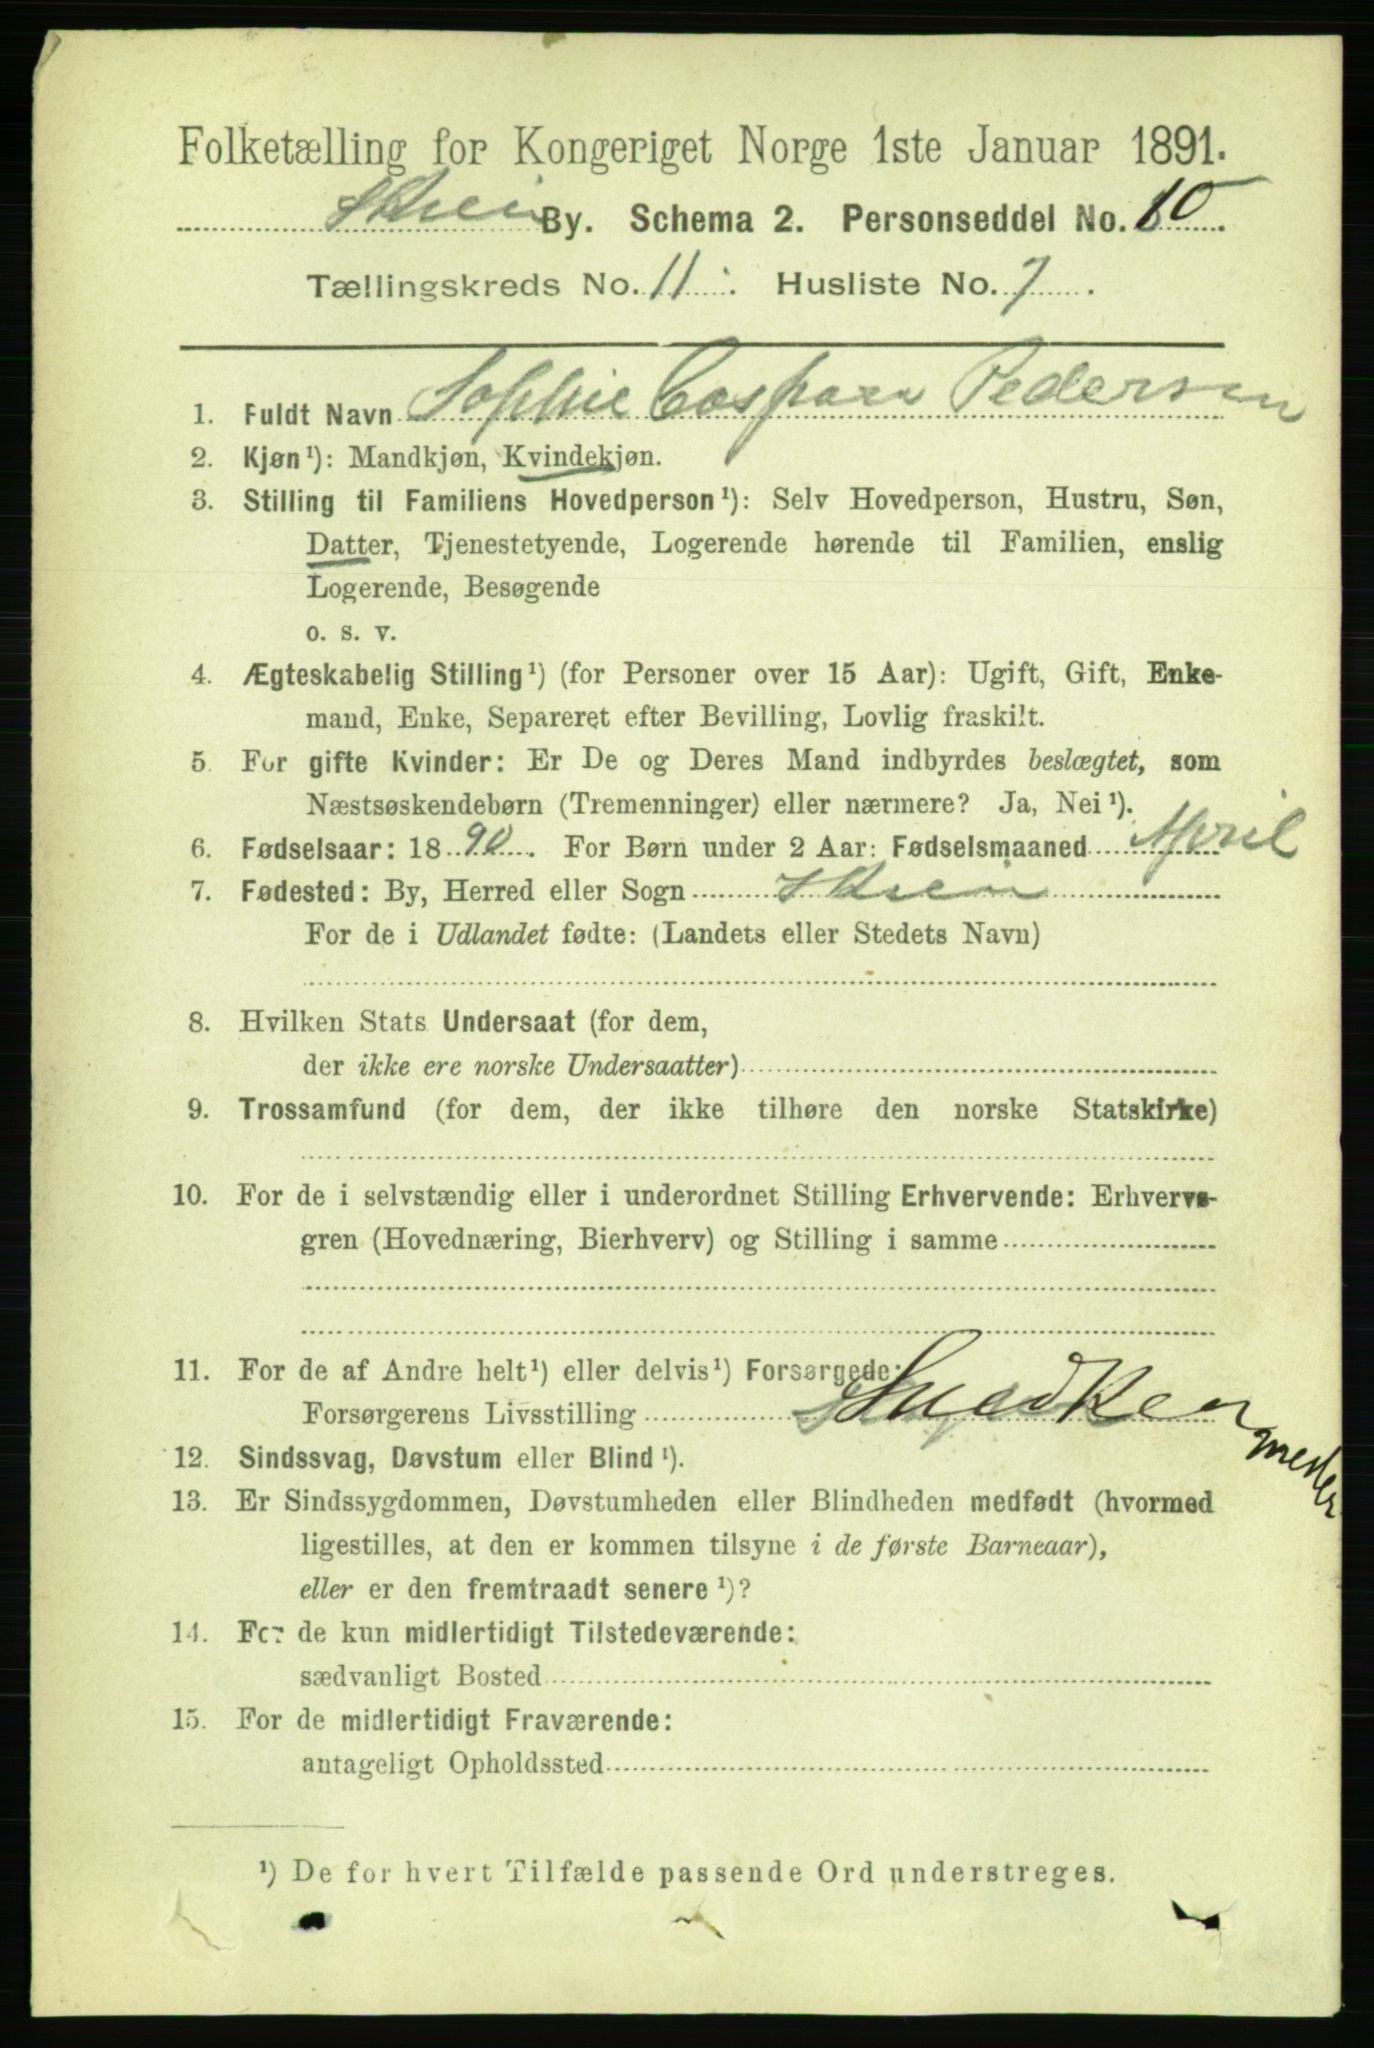 Folketælling for Kongeriget Norge 1ste Januar 1891.
Skien By. Schema 2. Personseddel No. 10.
Tællingskreds No. 11. Husliste No. 7.
1. Fuldt Navn Sophie Caspara Pedersen
2. Kjøn¹): Mandkjøn, Kvindekjøn.
3. Stilling til Familiens Hovedperson¹): Selv Hovedperson, Hustru, Søn,
Datter, Tjenestetyende, Logerende hørende til Familien, enslig
Logerende, Besøgende
o. s. v.
4. Ægteskabelig Stilling¹) (for Personer over 15 Aar): Ugift, Gift, Enke-
mand, Enke, Separeret efter Bevilling, Lovlig fraskilt.
5. For gifte Kvinder: Er De og Deres Mand indbyrdes beslægtet, som
Næstsøskendebørn (Tremenninger) eller nærmere? Ja, Nei¹).
6. Fødselsaar: 1890. For Børn under 2 Aar: Fødselsmaaned April
7. Fødested: By, Herred eller Sogn Skien
For de i Udlandet fødte: (Landets eller Stedets Navn)
8. Hvilken Stats Undersaat (for dem,
der ikke ere norske Undersaatter)
9. Trossamfund (for dem, der ikke tilhøre den norske Statskirke)
10. For de i selvstændig eller i underordnet Stilling Erhvervende: Erhvervs-
gren (Hovednæring, Bierhverv) og Stilling i samme
11. For de af Andre helt¹) eller delvis¹) Forsørgede:
Forsørgerens Livsstilling Snedker
mester
12. Sindssvag, Døvstum eller Blind¹).
13. Er Sindssygdommen, Døvstumheden eller Blindheden medfødt (hvormed
ligestilles, at den er kommen tilsyne i de første Barneaar),
eller er den fremtraadt senere¹)?
14. For de kun midlertidigt Tilstedeværende:
sædvanligt Bosted
15. For de midlertidigt Fraværende:
antageligt Opholdssted
¹) De for hvert Tilfælde passende Ord understreges.